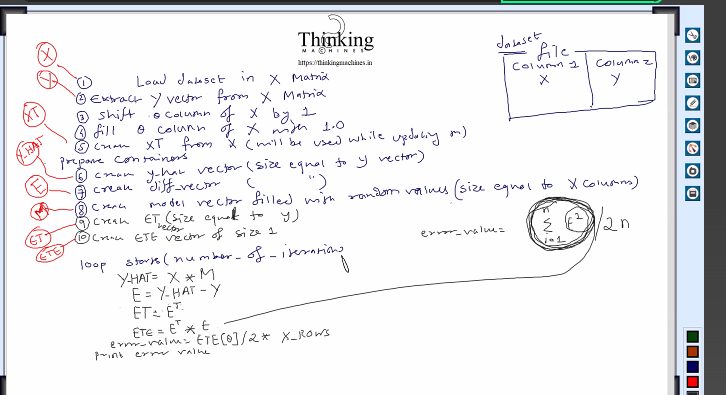 Thinking
MACHINES
https://thinkingmachines.in
dataset
file
Column 1 Column 2
X Y
X
Y
XT
Y-HAT
E
M
ET
ETE
① Load dataset in X Matrix
② Extract Y vector from X Matrix
③ shift 0 column of X by 1
④ fill 0 column of X with 1.0
⑤ Create XT from X (will be used while updating m)
Prepare containers
⑥ create y-hat vector (size equal to y vector)
⑦ create diff_vector ( " )
⑧ Create model vector filled with random values (size equal to X columns)
⑨ Create ET vector (size equal to y)
⑩ Create ETE vector of size 1
error_value = n Σ i=1 E² / 2n
loop starts (number_of_iterations
Y-HAT = X * M
E = Y-HAT - Y
ET = E^T
ETE = E^T * E
error_value = ETE[0]/2 * X_ROWS
Print error value